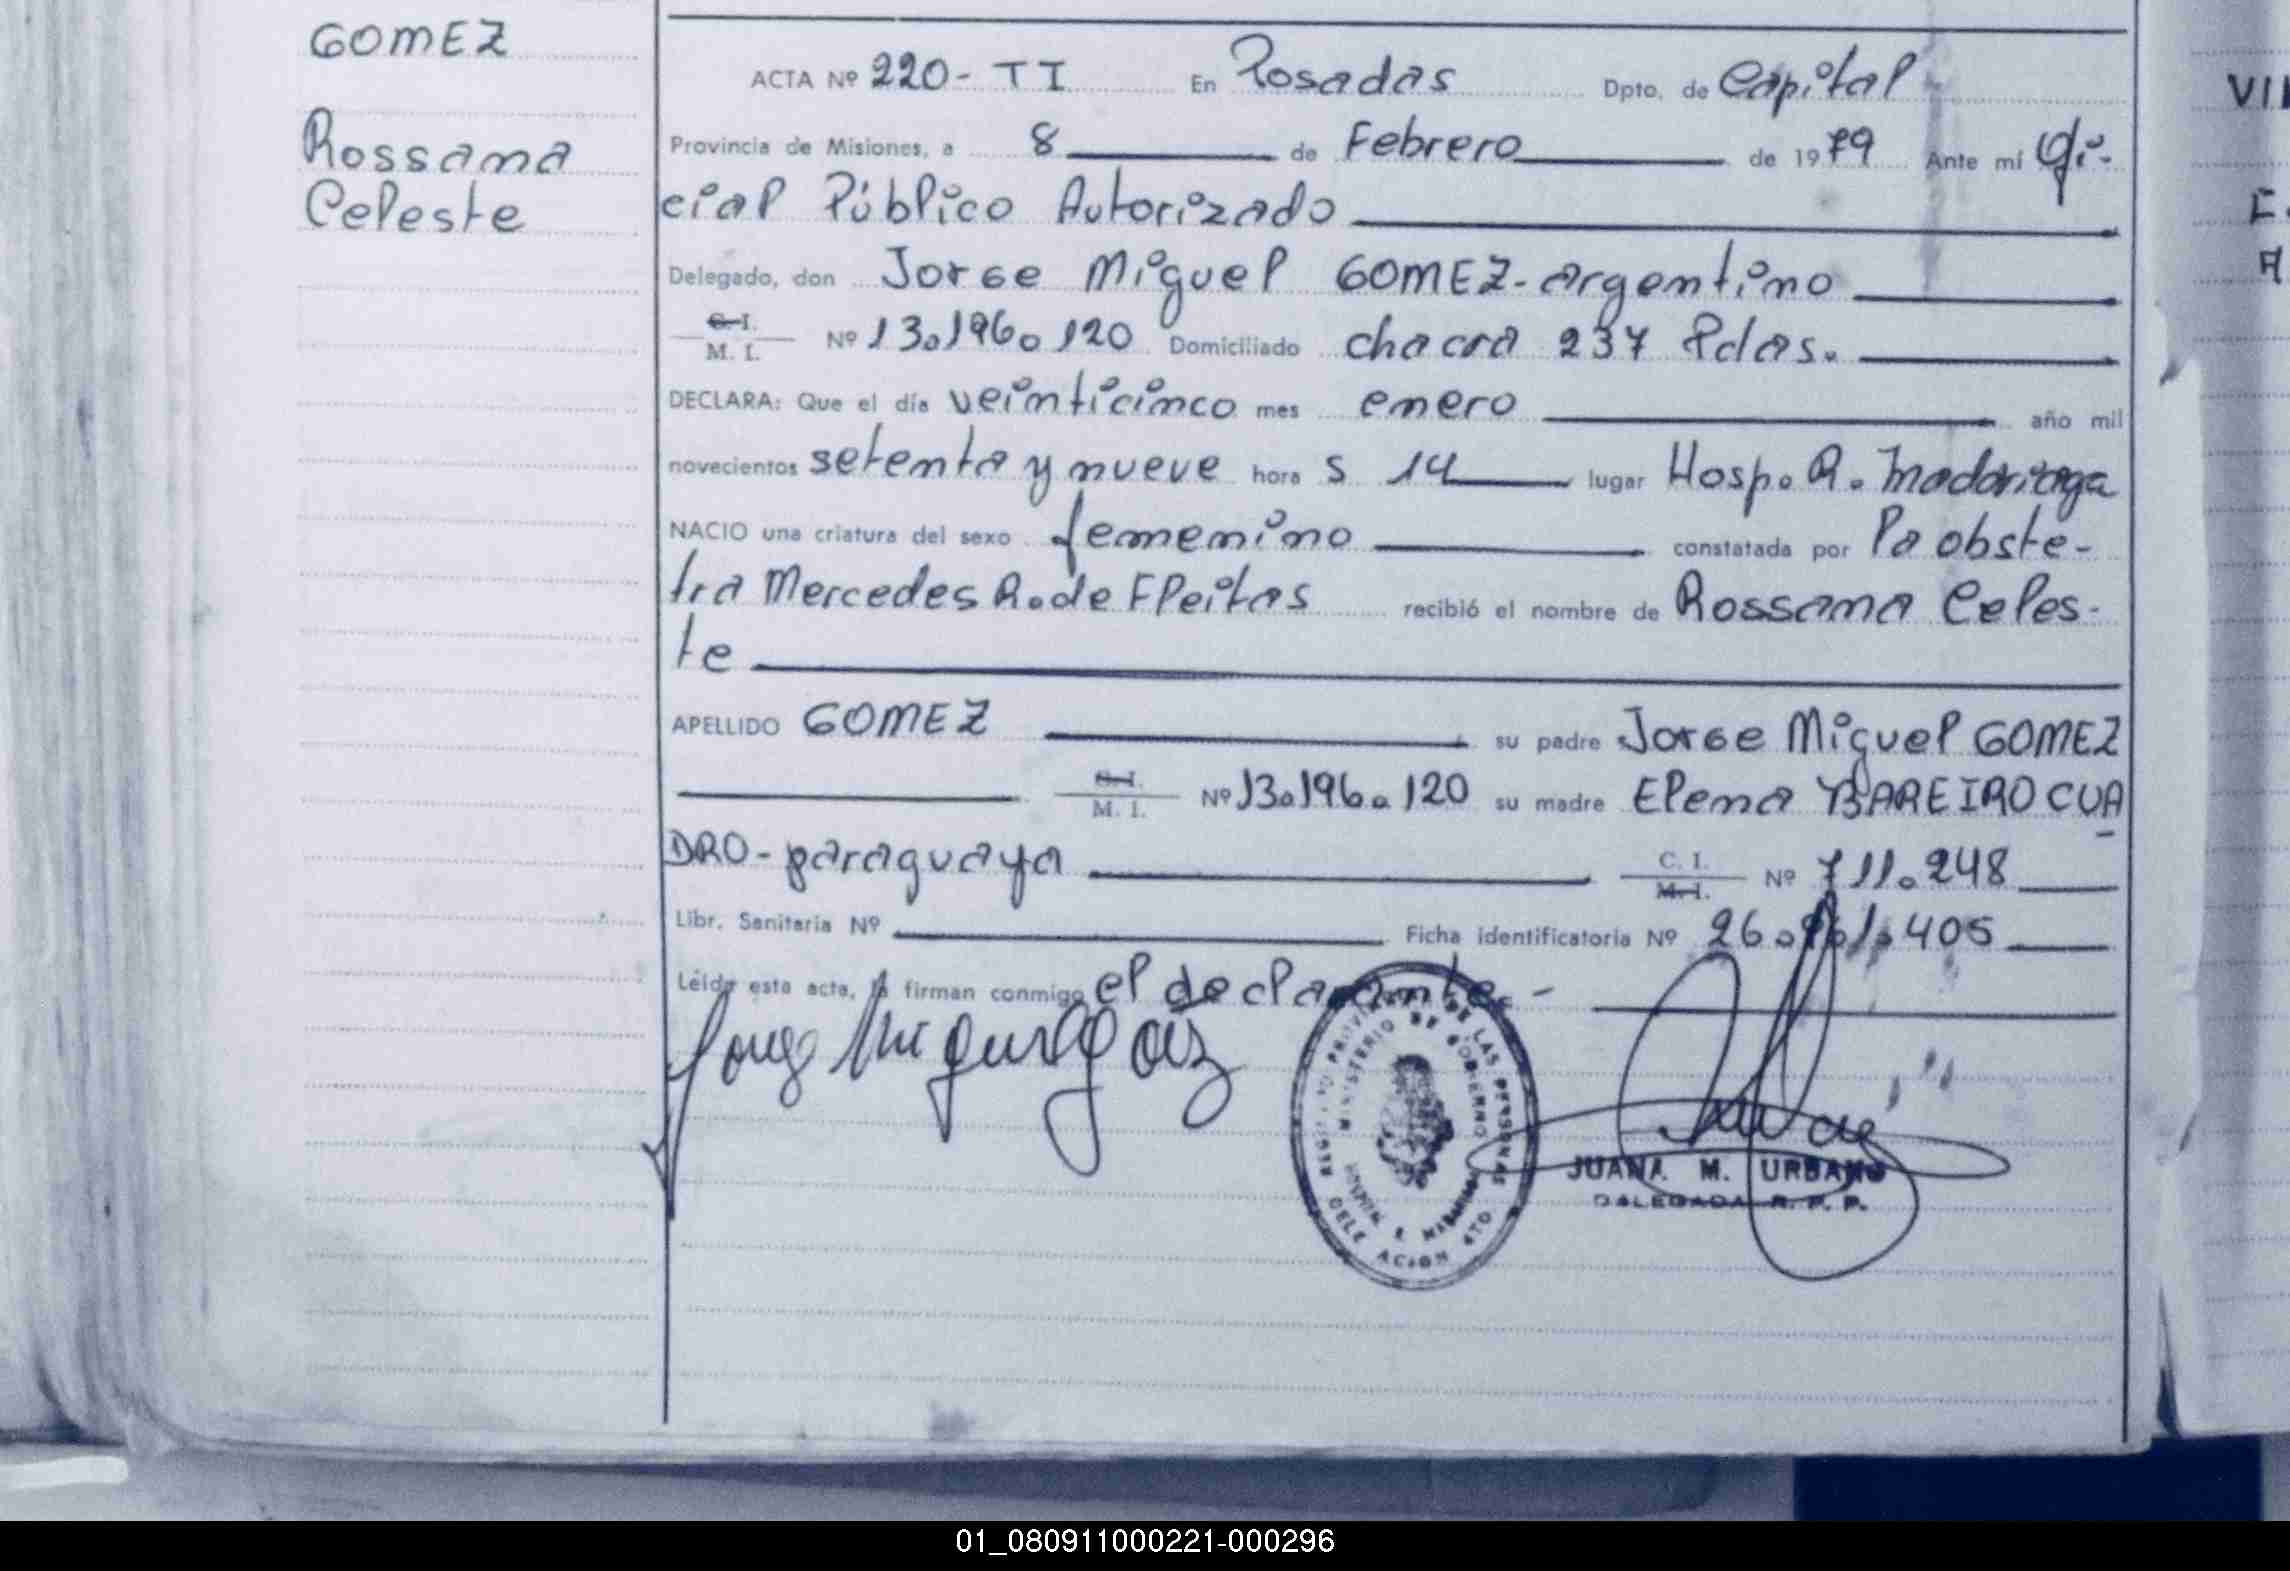 GOMEZ
Rossana
Celeste
ACTA Nº 220- TI En Posadas Dpto. de Capital
Provincia de Misiones, a 8 de Febrero de 1979 Ante mí Ofi-
cial Público Autorizado
Delegado, don Jorge Miguel GOMEZ-argentino
C. I.
M. I. Nº 13.196.120 Domiciliado chacra 237 Pdas.
DECLARA: Que el día veinticinco mes enero año mil
novecientos setenta y nueve hora s 14 lugar Hosp. R. Madariaga
NACIO una criatura del sexo femenino constatada por la obste-
tra Mercedes R. de Fleitas recibió el nombre de Rossana Celes-
te
APELLIDO GOMEZ su padre Jorge Miguel GOMEZ
C. I.
M. I. Nº 13.196.120 su madre Elena BAREIRO CUA
DRO- paraguaya C. I.
M. I. Nº 711.248
Libr. Sanitaria Nº Ficha identificatoria Nº 26.961.405
Leída esta acta, la firman conmigo el declarante.-
REGISTRO PROVINCIAL DE LAS PERSONAS
MINISTERIO DE GOBIERNO
JUANA M. URBANO
DELEGADA R. P. P.
VII
01_080911000221-000296